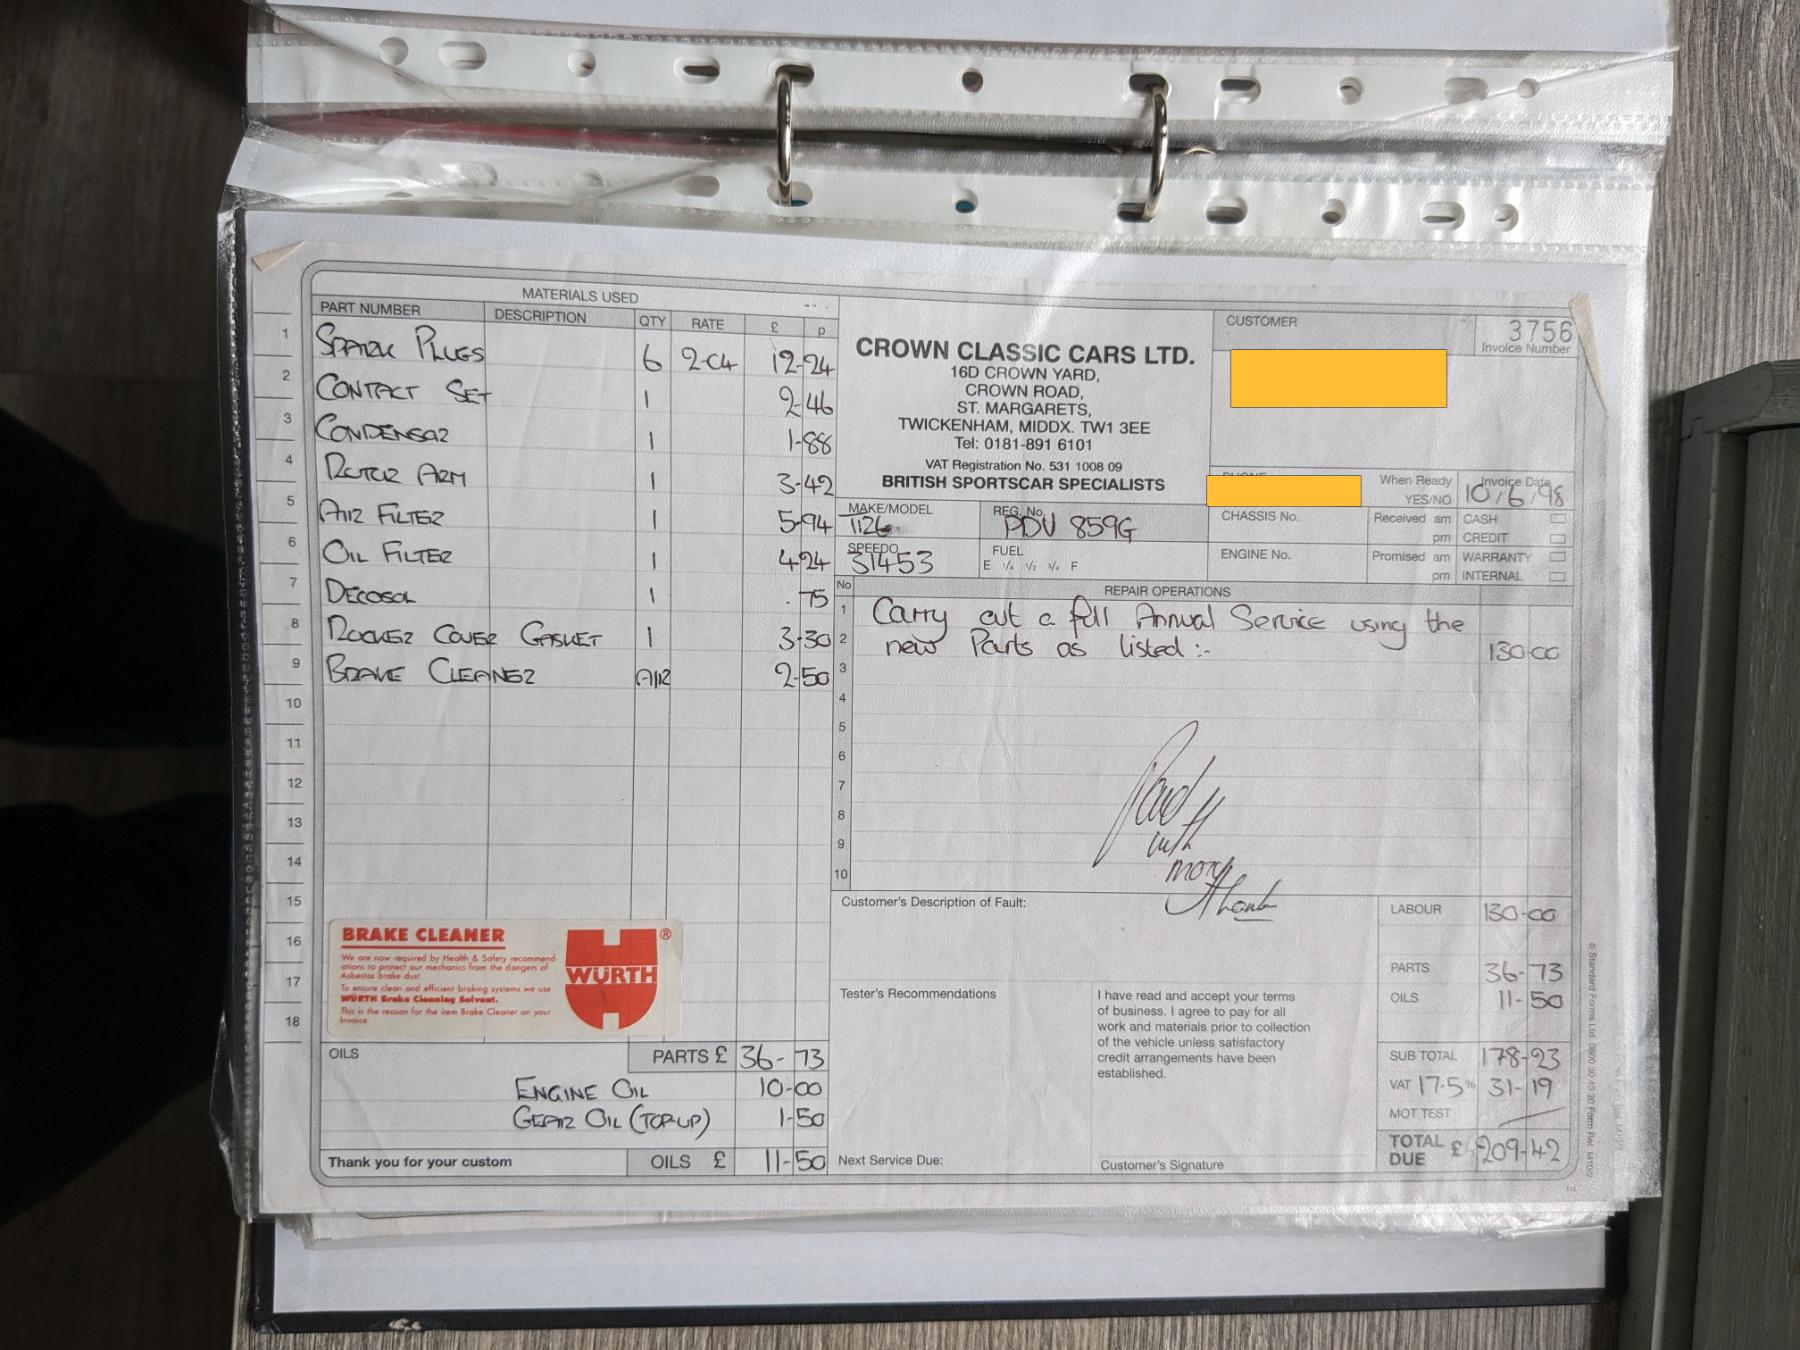 MATERIALS USED
PART NUMBER DESCRIPTION QTY RATE £ p
1 SPARK PLUGS 6 2-04 12-24
2 CONTACT SET 1 2-46
3 CONDENSOR 1 1-88
4 ROTOR ARM 1 3-42
5 AIR FILTER 1 5-94
6 OIL FILTER 1 4-24
7 DECOSOL 1 .75
8 ROCKER COVER GASKET 1 3-30
9 BRAKE CLEANER AIR 2-50
10
11
12
13
14
15
16
17
18
BRAKE CLEANER
We are now required by Health & Safety recommend-
ations to protect our mechanics from the dangers of
Asbestos brake dust.
To ensure clean and efficient braking systems we use
WÜRTH Brake Cleaning Solvent.
This is the reason for the item Brake Cleaner on your
Invoice.
WÜRTH ®
OILS PARTS £ 36-73
ENGINE OIL 10-00
GEAR OIL (TOP-UP) 1-50
Thank you for your custom OILS £ 11-50
CROWN CLASSIC CARS LTD.
16D CROWN YARD,
CROWN ROAD,
ST. MARGARETS,
TWICKENHAM, MIDDX. TW1 3EE
Tel: 0181-891 6101
VAT Registration No. 531 1008 09
BRITISH SPORTSCAR SPECIALISTS
CUSTOMER
3756
Invoice Number
When Ready
YES/NO
Invoice Date
10/6/98
MAKE/MODEL
REG. No.
PDV 859G
CHASSIS No.
Received am
pm
CASH
CREDIT
SPEEDO
31453
FUEL
E ¼ ½ ¾ F
ENGINE No.
Promised am
pm
WARRANTY
INTERNAL
No REPAIR OPERATIONS
1 Carry out a full Annual Service using the
2 new Parts as listed :- 130-00
3
4
5
6
7
8
9
10
Paid
with
many
thanks
Customer's Description of Fault:
Tester's Recommendations
I have read and accept your terms
of business. I agree to pay for all
work and materials prior to collection
of the vehicle unless satisfactory
credit arrangements have been
established.
Next Service Due:
Customer's Signature
LABOUR 130-00
PARTS 36-73
OILS 11-50
SUB TOTAL 178-23
VAT 17.5% 31-19
MOT TEST
TOTAL DUE £ 209-42
© Standard Forms Ltd.